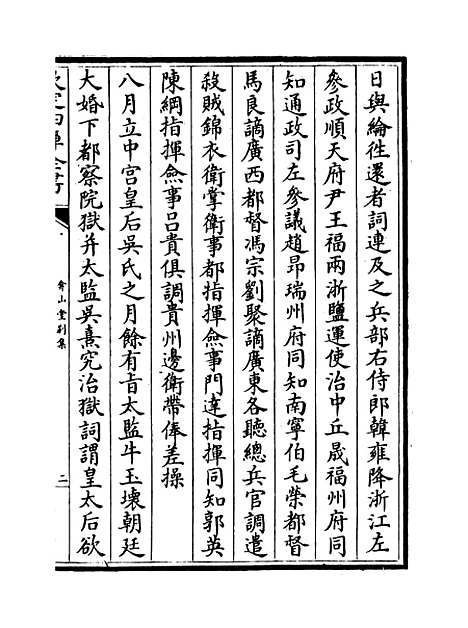 日與綸徃還者詞連及之兵部右侍郎韓雍降浙江左
參政順天府尹王福兩浙鹽運使治中丘晟福州府同
知通政司左參議趙昂瑞州府同知南寧伯毛榮都督
馬良謫廣西都督馮宗劉聚謫廣東各聽總兵官調遣
殺賊錦衣衛掌衛事都指揮僉事門達指揮同知郭英
陳綱指揮僉事吕貴俱調貴州邊衛帶俸差操
八月立中宫皇后吳氏之月餘有旨太監牛玉壊朝廷
大婚下都察院獄并太監吳熹究治獄詞謂皇太后欲
欽定四庫全書
弇山堂别集
二